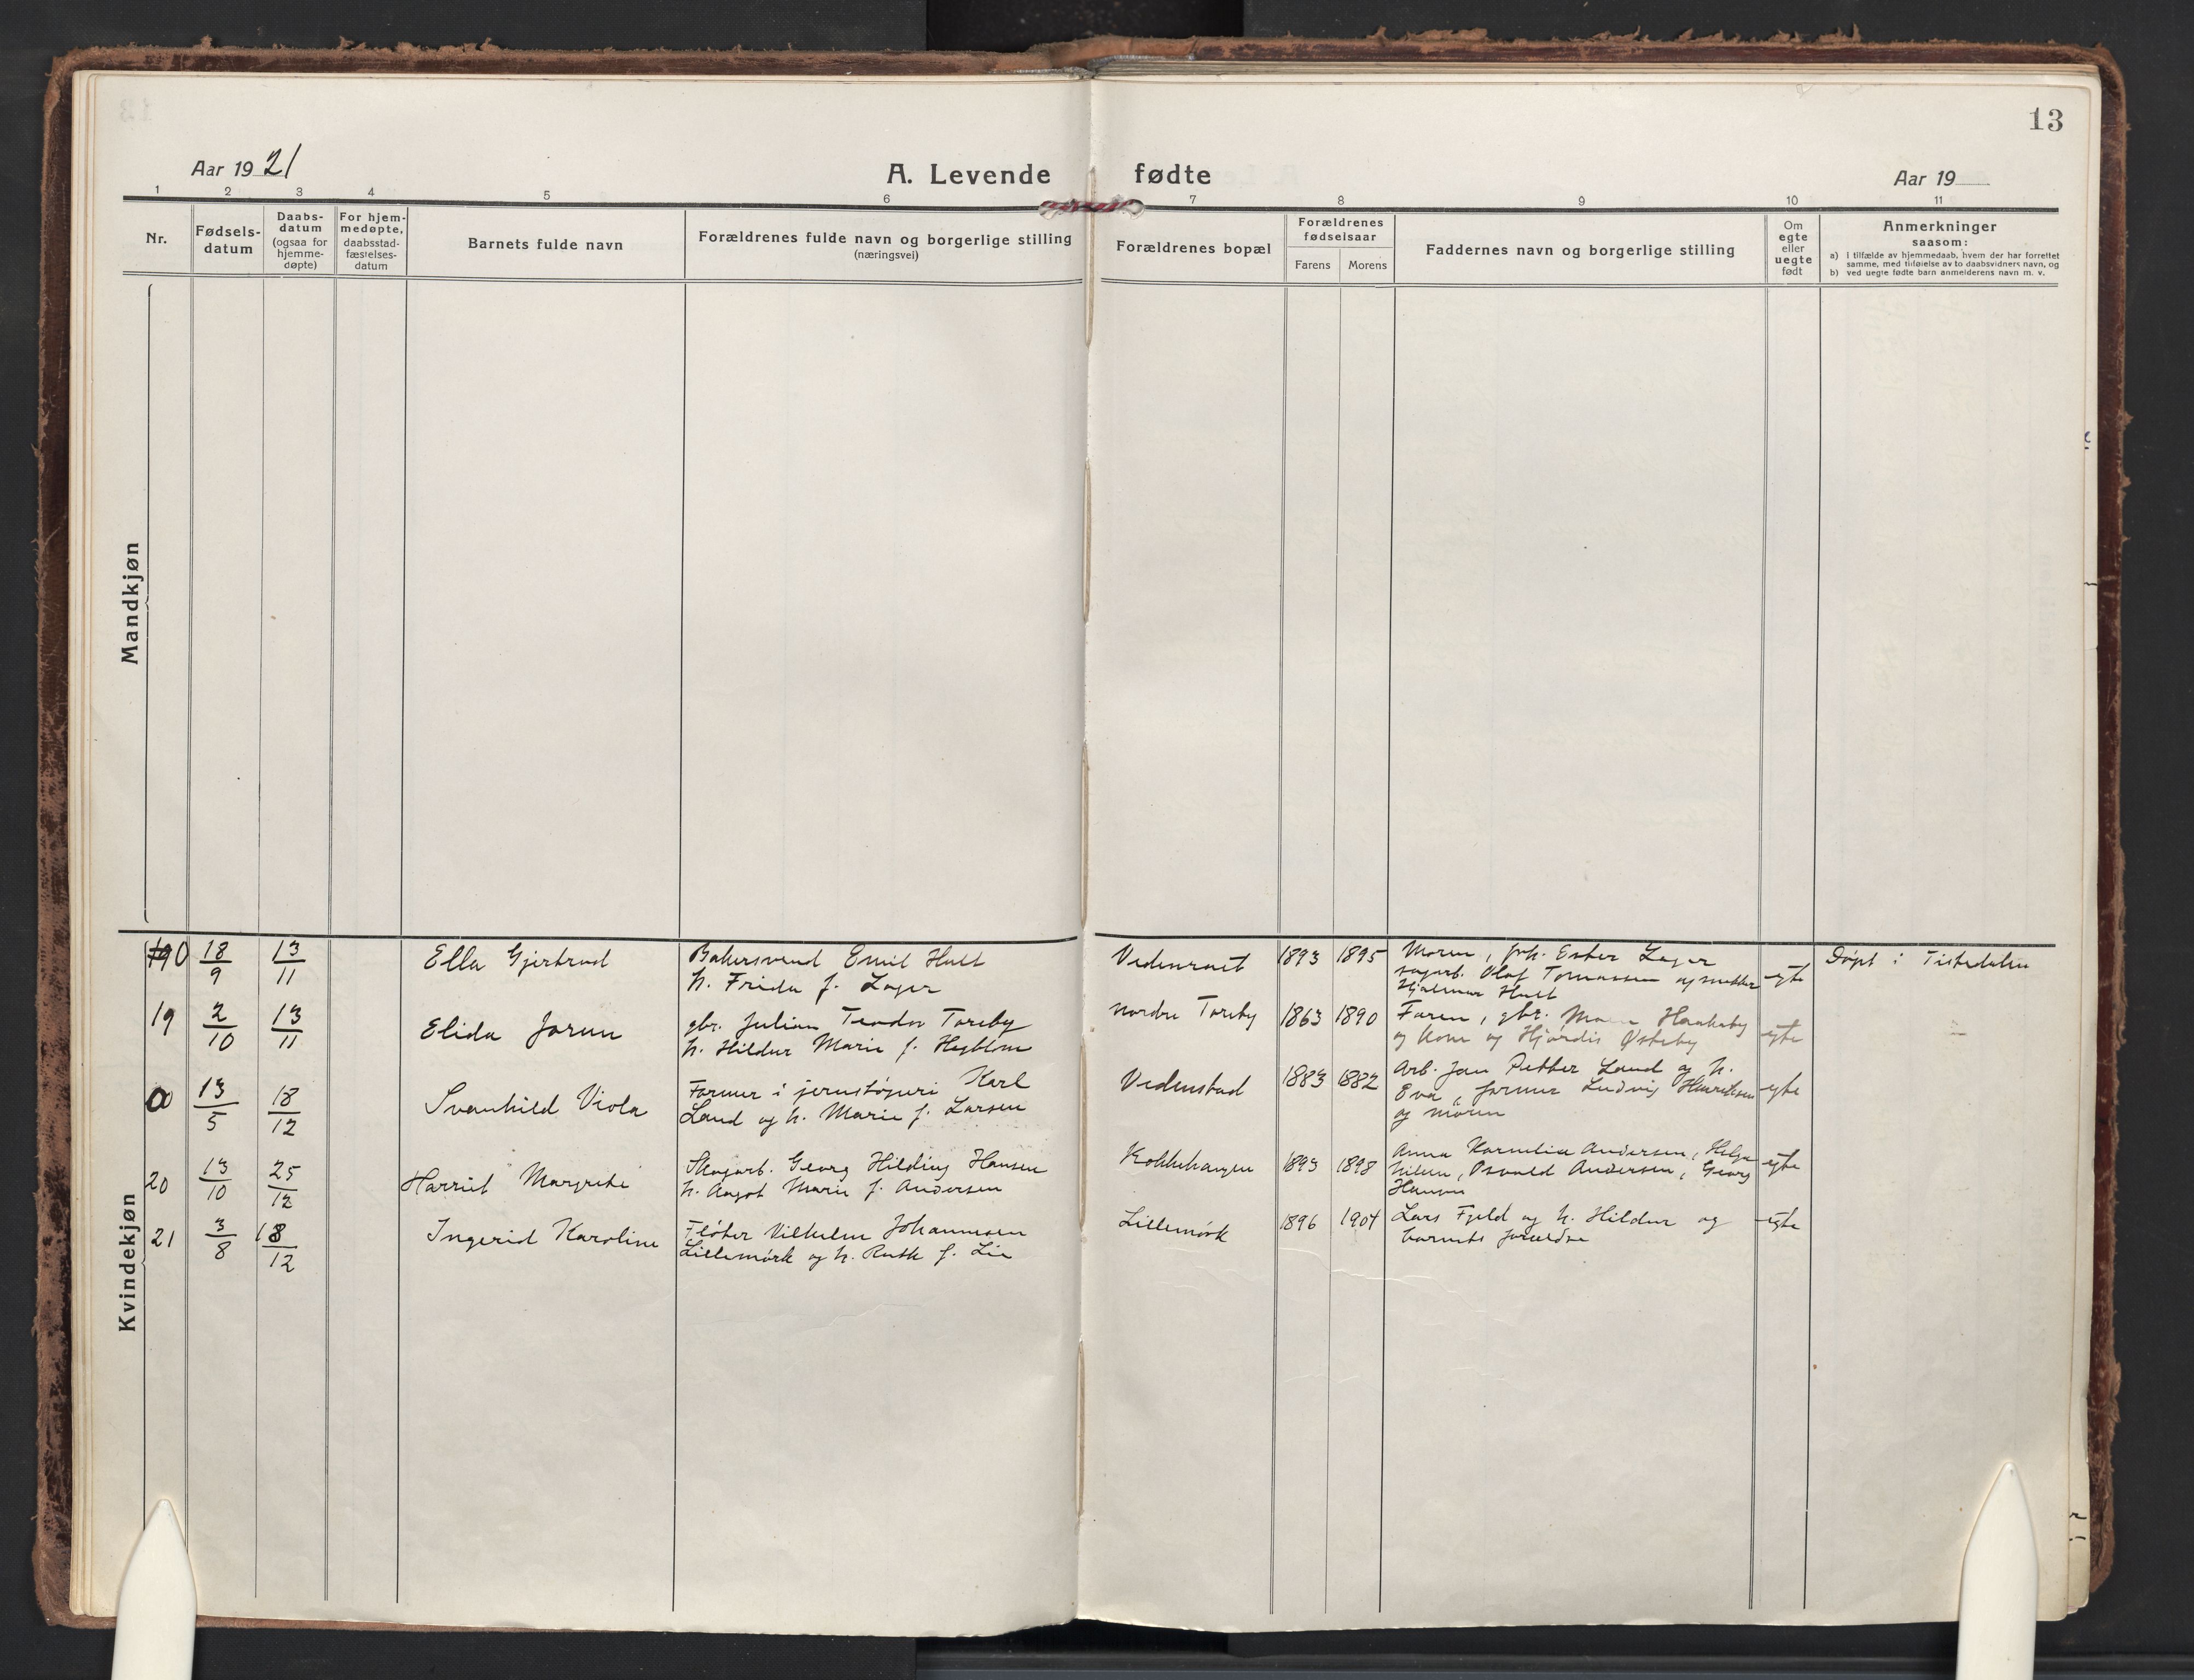 13
Aar 1921
A. Levende fødte
Aar 19
1 2 3 4 5 6 7 8 9 10 11
Nr.
Fødsels-
datum
Daabs-
datum
(ogsaa for
hjemme-
døpte)
For hjem-
medøpte,
daabsstad-
fæstelses-
datum
Barnets fulde navn
Forældrenes fulde navn og borgerlige stilling
(næringsvei)
Forældrenes bopæl
Forældrenes
fødselsaar
Farens Morens
Faddernes navn og borgerlige stilling
Om
egte
eller
uegte
født
Anmerkninger
saasom:
a) I tilfælde av hjemmedaab, hvem der har forrettet
samme, med tilføielse av to daabsvidners navn, og
b) ved uegte fødte barn anmelderens navn m. v.
Mandkjøn
Kvindekjøn
0 18/9 13/11 Ella Gjertrud
Bakersvend Emil Hult
h. Frida f. Lager
1893 1895
Moren, frk. Ester Lager
sagarb. Olaf Tomassen og
Hjalmar Hult
egte
Døpt i Tistedalen
19 2/10 13/11 Elida Jorun
gbr. Julian Teodor Toreby
h. Hildur Marie f. Heyblom
Nordre Toreby 1863 1890
Faren, gbr.
og kone og Hjørdis Østeby
egte
0 13/5 18/12 Svanhild Viola
Former i jernstøperi Karl
Land og h. Marie f. Larsen
Vedenstad 1883 1882
Arb. Jan Petter Land og h.
Eva, former Ludvig Henriksen
og moren
egte
20 13/10 25/12 Harriet Margrete
Skogarb. Georg Hilding Hansen
h. Aagot Marie f. Andersen
Kokkehaugen 1893 1898
Anna Kornelia Andersen, Helga
Nilsen, Osvald Andersen, Georg
Hansen
egte
21 3/8 18/12 Ingerid Karoline
Fløter Vilhelm Johannesen
Lillemørk og h. Ruth f. Lie
Lillemørk 1896 1904
Lars Fjeld og h. Hildur og
barnets forældre
egte